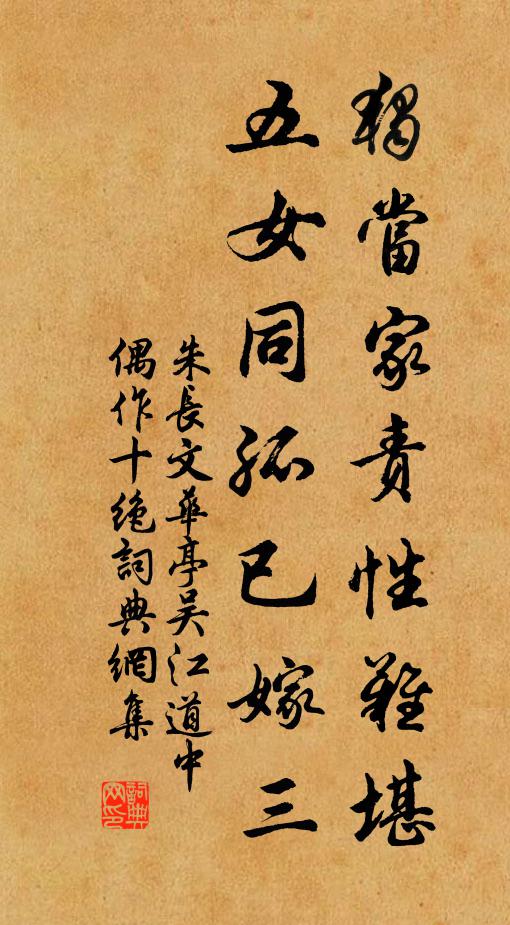 獨當家責性難堪
五女同孤已嫁三
朱長文華亭吴江道中
偶作十絶詞典網集
詞典網印